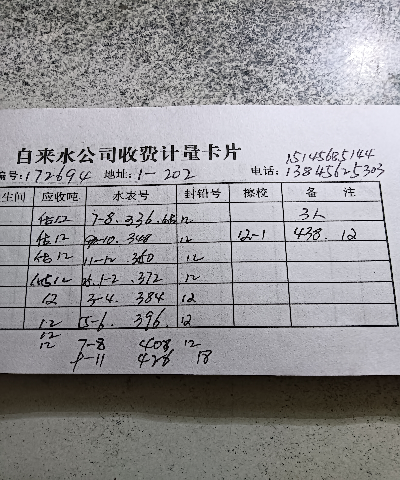 自来水公司收费计量卡片
编号:172694 地址:1-202 电话:15145685144
13845625303
生间 应收吨 水表号 封铅号 换校 备 注
估12 7-8. 336. 12 3人
估12 9-10. 348 12 12-1 438. 12
估12 11-12 360 12
估12 1-2. 372 12
12 3-4. 384 12
12 5-6. 396 12
12
12 7-8 408 12
9-11 426 18